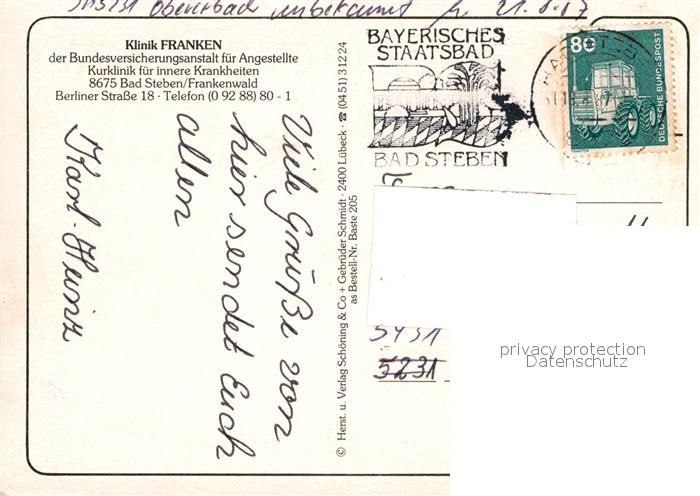 Oberelbach unbekannt 21.8.87
Klinik FRANKEN
der Bundesversicherungsanstalt für Angestellte
Kurklinik für innere Krankheiten
8675 Bad Steben/Frankenwald
Berliner Straße 18 · Telefon (0 92 88) 80 - 1
Viele Grüße von
hier sendet Euch
allen
Karl-Heinz
© Herst. u. Verlag Schöning & Co + Gebrüder Schmidt · 2400 Lübeck · ☎ (04 51) 3 12 24
as Bestell-Nr. Baste 205
BAYERISCHES
STAATSBAD
BAD STEBEN
80
DEUTSCHE BUNDESPOST
5431
5231
privacy protection
Datenschutz